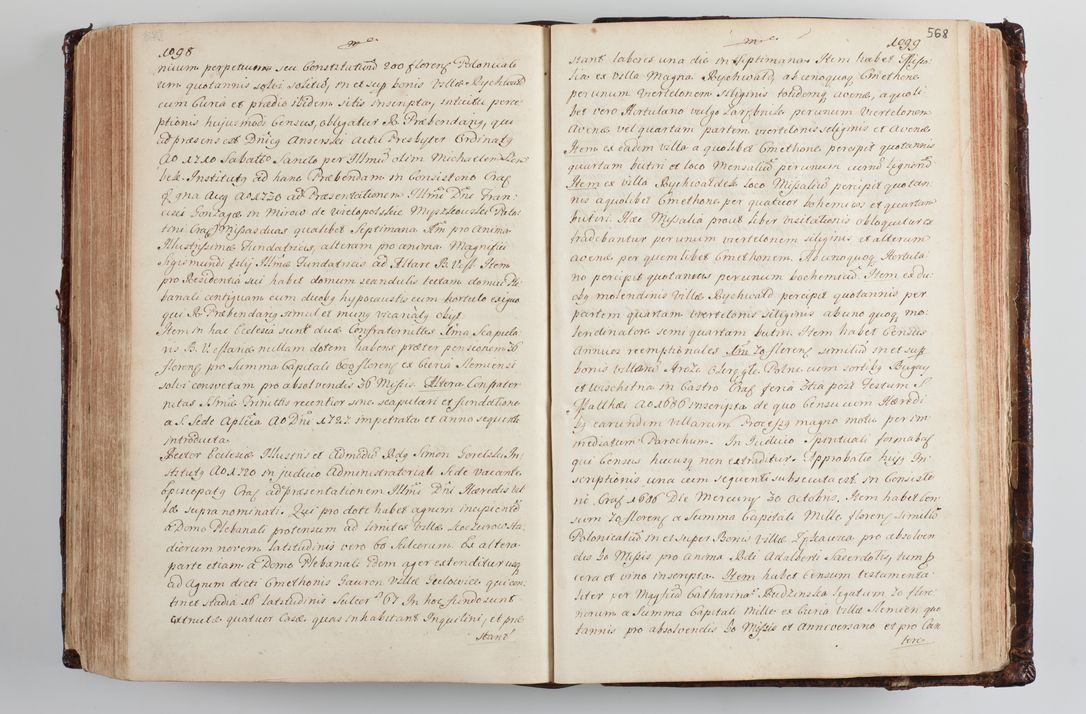 1098
nuum perpetuum seu Constitutivū 200 florenȝ Polonicali
um quotannis solvi solitū, in et sup bonis Villæ Rychwałd
cum Curia et prædio ibidem sitis inscripta, intuitu perce
ptionis hujusmodi Census, obligatur R. Præbendarȝ, qui
ad præsens est Dnicȝ Anserski actu Presbyter Ordinatȝ
Ao 1710 Sabatto Sancto per Illmū olim Michaelem
Institutȝ ad hanc Præbendam in Consistorio Crac
Ao 1730 ad Præsentationem Illmi Dni Fran
cisci Gonzaga in Mirow de Wielopolskie Myszkowski
Crac Missas duas qualibet Septimana pro anima
Illustrissimæ Fundatricis, alteram pro anima Magnifici
Sigismundi filij Illmæ Fundatricis ad Altare B. V. Item
pro Residentia sui habet domum scandulis tectam domui Ple
banali contiguam cum duobȝ hypocaustis cum hortulo exiguo
qui R. Præbendarȝ simul et munȝ vicarialȝ obijt.
Item in hac Ecclesia sunt duæ Confraternitles Scapula
ris B. V. Mariæ nullam dotem habens præter pensionem 36
florenȝ pro Summa Capitali 600 florenȝ ex Curia Slemiensi
solvi consvetam pro absolvendis 36 Missis Altera Confrater
nitas Smæ Trinittis recentior sine scapulari et fundatione
a S. Sede Aplica Ao Dni 1727 impetrata et Anno sequenti
introducta.
Rector Ecclesiæ Illustris et Admodū Rdȝ Simon Gorelski In
stitutȝ Ao 1720 in judicio Administratoriali Sede vacante
Episcopatȝ Crac ad præsentationem Illmi Dni Hæredis Vil
læ supra nominati. Qui pro dote habet agrum incipiendo
a Domo Plebanali protensum ad limites Villæ Koczurow Sta
diorum novem latitudinis vero 60 Sulcorum. Ex altera
parte etiam a Domo Plebanali idem ager extenditur usqȝ
ad Agrum dicti Cmethonis Gauron Villæ Gelowice, qui con
tinet stadia 16 latitudinis Sulcos 67 In hoc fundo sunt
extructæ quatuor Casæ quas inhabitant Inquilini, et præ
stant

568
1099
stant labores una die in Septimana. Item habet Missa
lia ex villa Magna Rychwald, ab unoquoqȝ Cmethone
per unum viertelonem siliginis totidemqȝ avenæ, a quoli
bet vero Hortulano vulgo Zarębnik per unum Viertelonem
Avenæ vel quartam partem viertelonis siliginis et Avenæ
Item ex eadem villa a quolibet Cmethone percipit quotannis
quartam butiri et loco Mensalium per unum currū lignorū
Item ex villa Rychwaldek loco Missaliū percipit quotan
nis a quolibet Cmethone per quatuor bohemicos et quartam
butiri. Hæc Missalia prout liber visitationis obloquitur
tradebantur per unum viertelonem siliginis et alterum
avenæ per quemlibet Cmethonem. Ab unoquoqȝ Hortula
no percipit quotannis per unum bochemicū. Item ex du
obȝ molendinis Villæ Rychwald percipit quotannis per
partem quartam viertelonis siliginis ab uno quoqȝ mo
lendinatore semi quartam butiri. Item habet Census
Annuos reemptionales 70 florenȝ similiū in et supȝ
bonis villarū Polne, cum sortibȝ Bugay
et Wischetna in Castro Crac feria 3tia post Festum S.
Matthæi Ao 1686 inscripta de quo Censu cum Hæredi
bȝ earundem villarum Processȝ magno motu per im
mediatum Parochum. In Judicio Spirituali formabat
qui Census hucusqȝ non extraditur. Approbatio hujȝ In
scriptionis una cum sequenti subsecuta est in Consisto
rio Crac 1686 Die Mercurij 30 Octobris. Item habet Cen
sum 70 florenȝ a Summa Capitali Mille florenȝ similiū
Polonicaliū in et super Bonis Villæ pro absolven
dis 30 Missis pro anima Rdi Adalberti Sacerdotis, tum p
cera et vino inscripta. Item habet Censum testamenta
liter per Magficā Catharinā Rudzinska legatum 70 flore
norum a Summa Capitali Mille ex Curia Villæ Slemien quo
tannis pro absolvendis 30 Missis et Anniversario et pro Can
tore